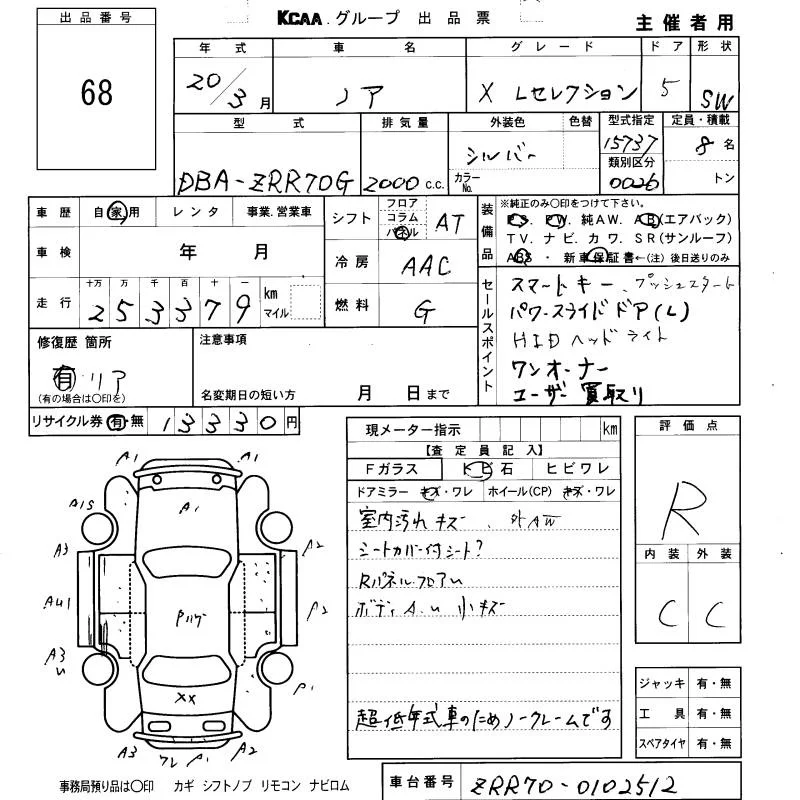 出品番号
68
KCAA.グループ 出品票
主催者用
年式 車名 グレード ドア 形状
20/3月 ノア X Lセレクション 5 SW
型式 排気量 外装色 色替 型式指定 定員・積載
DBA-ZRR70G 2000 c.c. シルバー カラーNo. 15737 8名
類別区分 0026 トン
車歴 自家用 レンタ 事業.営業車
シフト フロア コラム パネル AT
装備品
※純正のみ○印をつけて下さい。
P.S. P.W. 純AW. AB(エアバック)
TV. ナビ. カワ. SR(サンルーフ)
ABS ・ 新車保証書←(注)後日送りのみ
車検 年 月
冷房 AAC
走行 十万 万 千 百 十 一
253379 km マイル
燃料 G
セールスポイント
スマートキー、プッシュスタート
パワースライドドア(L)
HIDヘッドライト
ワンオーナー
ユーザー買取り
修復歴 箇所
有 リア
(有の場合は○印を)
注意事項
名変期日の短い方 月 日まで
リサイクル券 有・無 13330円
現メーター指示 km
【査定員記入】
Fガラス トビ石 ヒビワレ
ドアミラー キズ・ワレ ホイール(CP) キズ・ワレ
室内汚れキズ、外AW
シートカバー付シート?
Rパネル.フロアU
ボディA.U 小キズ
超低年式車のためノークレームです
評価点
R
内装 外装
C C
ジャッキ 有・無
工具 有・無
スペアタイヤ 有・無
A1 A1
A1
A1S
A3 A2
AU1
A3
U
P2
XX
P1
A3 ワレ A1 A2
事務局預り品は○印 カギ シフトノブ リモコン ナビロム
車台番号 ZRR70-0102512